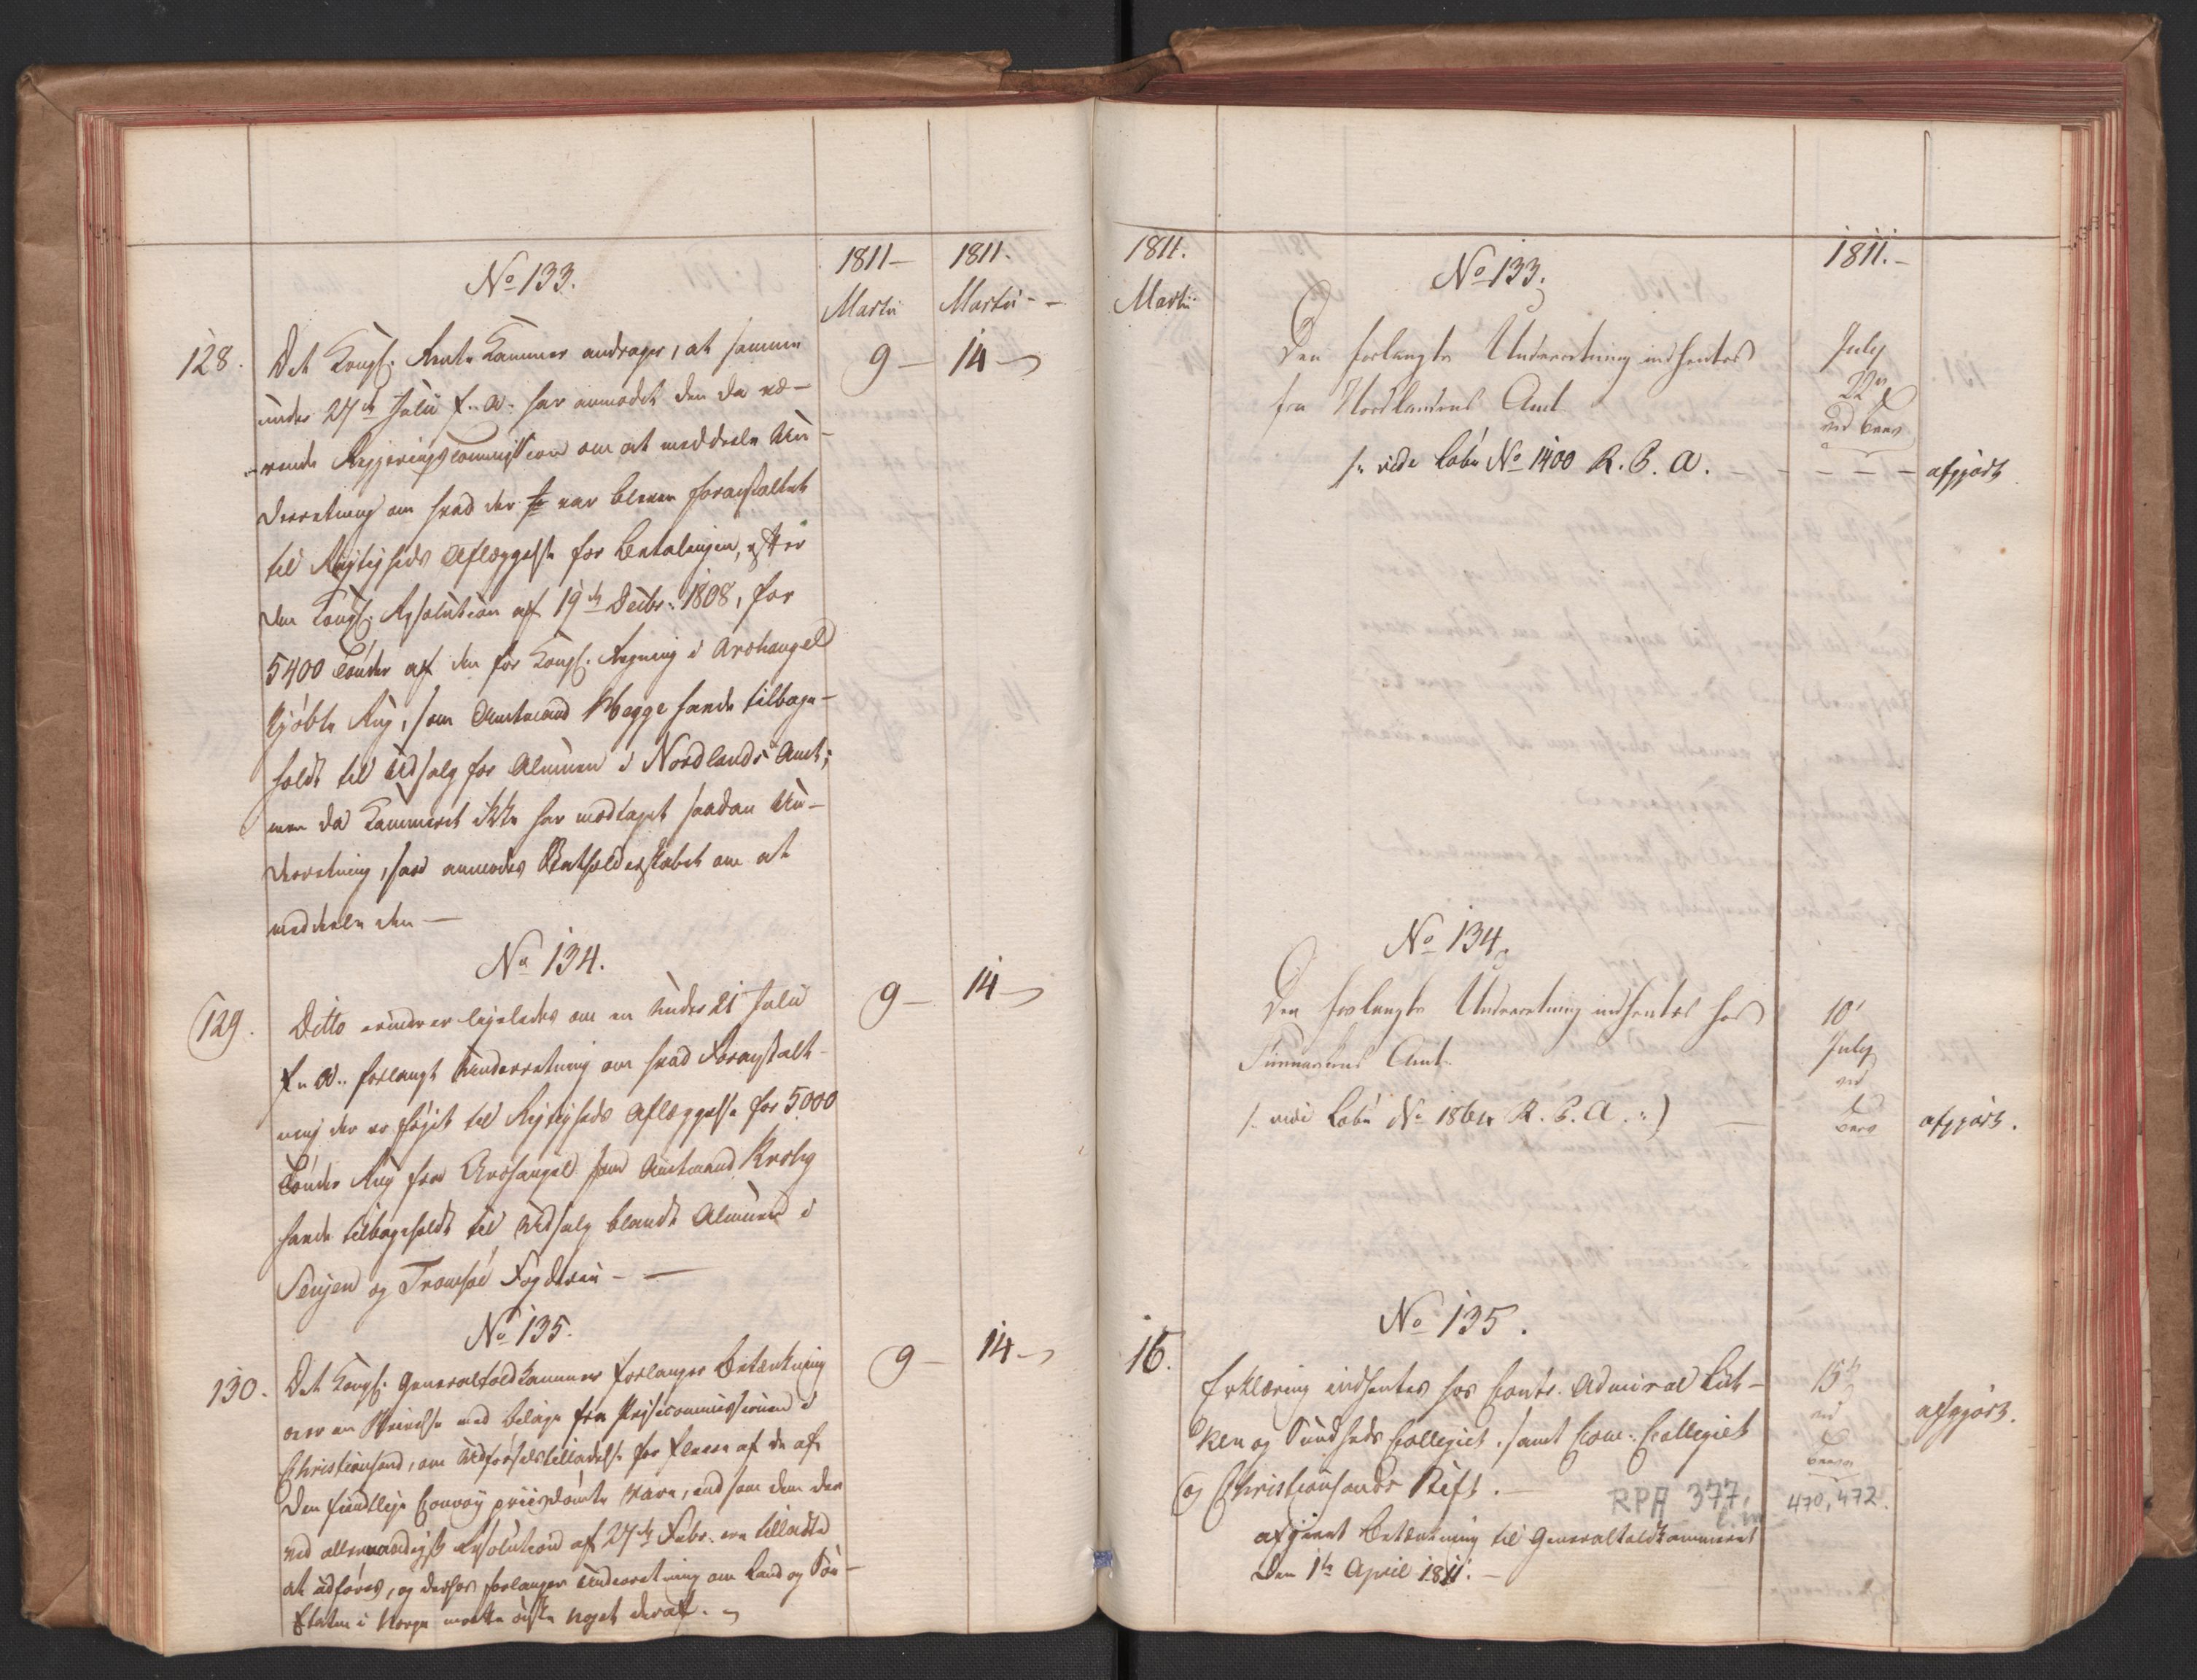 1811 —
1811.
Martii
Martii - -
No 133.
128.
Det Kongl. Rente Kammer andrager, at samme
9 —
14 —
under 27de Julii f. A. har anmodet den da væ-
-rende Regjeringscommission om at meddele Un-
derretning om hvad der var bleven foranstaltet
til Rigtigheds Aflæggelse for Betalingen, efter
den Kongl. Resolution af 19de Decbr. 1808, for
5400 Tønder af den for Kongl. Regning i Archangel
kjøbte Rug, som Amtmand Hegge havde tilbage-
holdt til Udsalg for Almuen i Nordlands Amt;
men da Kammeret ikke har modtaget saadan Un-
derretning, saa anmodes Statholderskabet om at
meddele den —
No 134.
129.
Ditto erindrer ligeledes om en under 21 Julii
9 —
14 —
f. A. forlangt Underretning om hvad Foranstalt-
ning der er føjet til Rigtigheds Aflæggelse for 5000
Tønder Rug fra Archangel som Amtmand Krohg
havde tilbageholdt til Udsalg blandt Almuen i
Senjen og Tromsøe Fogderie - —
No 135.
130.
Det Kongl. Generaltoldkammer forlanger Betænkning
9 —
14 —
over en Skrivelse med Bilage fra Prisecommissionen i
Christiansand, om Udførselstilladelse for fleere af de af
den fiendtlige Convoy priisdømte Vare, end som dem der
ved allernaadigst Resolution af 27de Febr. ere tilladte
at udføres, og derhos forlanger Underretning om Land og Søe-
Etaten i Norge maatte ønske noget deraf.
1811.
Martii
No 133.
1811. -
Den forlangte Underretning indhentes
fra Nordlandens Amt
July
22de
ved Brev
/: vide Løbe No 1400 R. C. A.
- - - - afgjort
No 134.
Den forlangte Underretning indhentes hos
Finmarkens Amt.
10
July
ved
Brev
/: vide Løbe No 1864 R. C. A. :)
afgjort.
No 135.
16.
Erklæring indhentes hos Contr. Admiral Lüt-
ken og Sundheds Collegiet, samt Com: Collegiet
og Christiansands Stift. —
15de
ved
Breve
afgjort.
RPA 377,
470, 472.
afgivet Betænkning til Generaltoldkammeret
den 1te April 1811. —